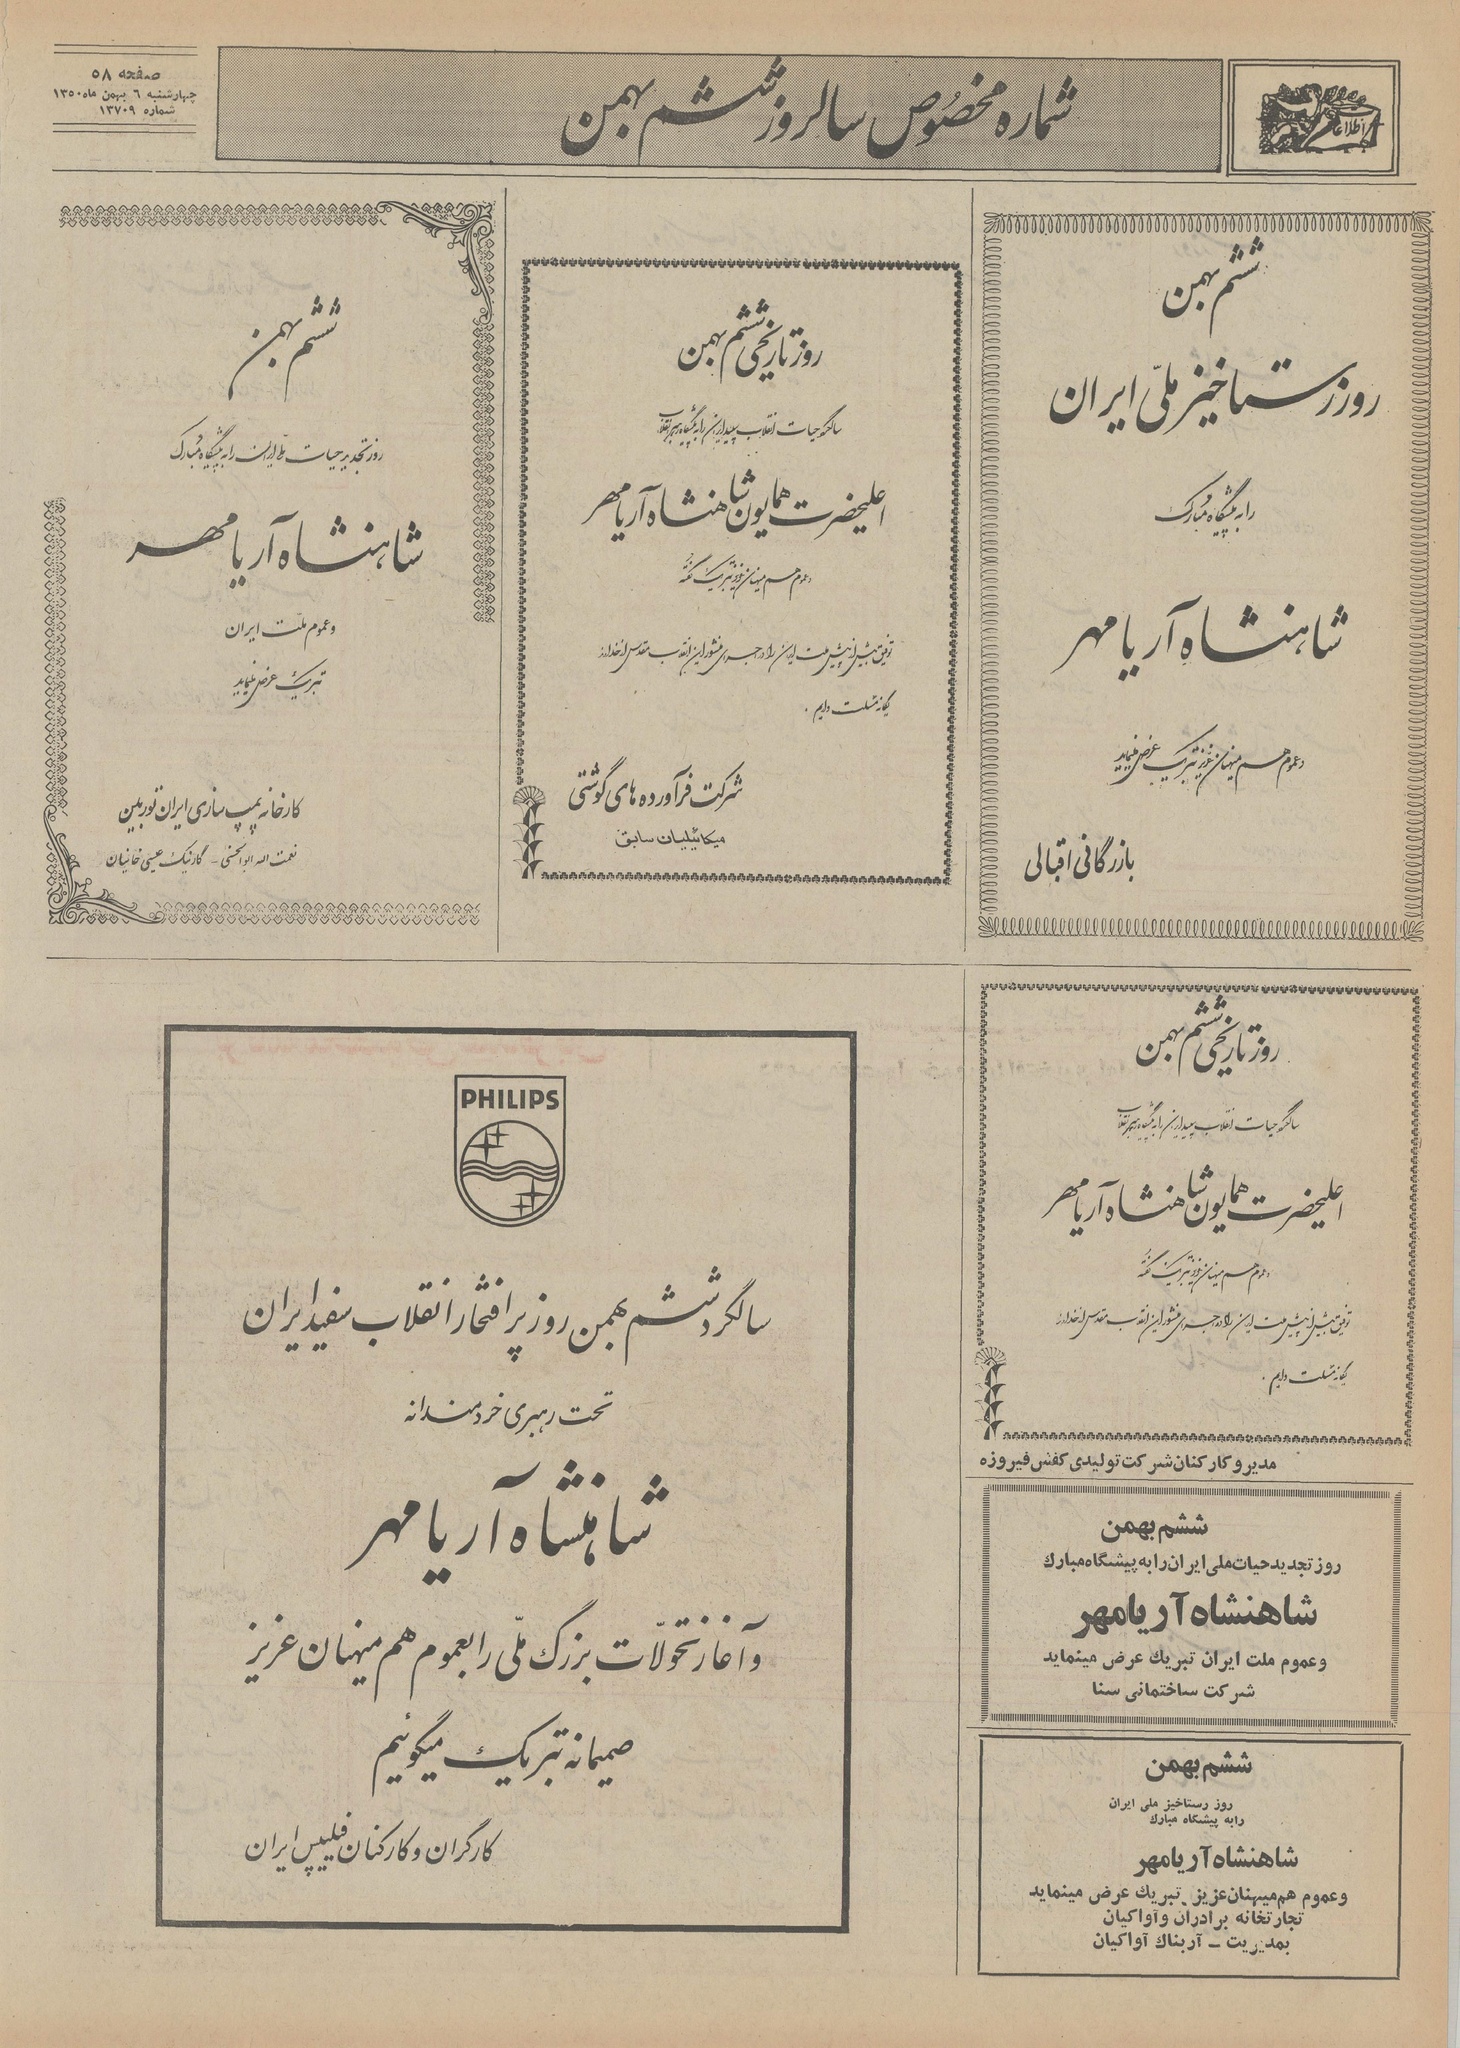 صفحه ۵۸
چهارشنبه ۶ بهمن ماه ۱۳۵۰
شماره ۱۳۷۰۹
شماره مخصوص سالروز ششم بهمن
اطلاعات
ششم بهمن
روز رستاخیز ملّی ایران
را به پیشگاه مبارک
شاهنشاه آریامهر
و عموم هم میهنان عزیز تبریک عرض مینماید
بازرگانی اقبالی
روز تاریخی ششم بهمن
سالگرد حیات انقلاب سپید ایران را به پیشگاه رهبر انقلاب
اعلیحضرت همایون شاهنشاه آریامهر
و عموم هم میهنان عزیز تبریک گفته
توفیق بیش از پیش ملت ایران را در اجرای منشور این انقلاب مقدس از خداوند
یگانه مسئلت داریم .
شرکت فرآورده های گوشتی
میکائیلیان سابق
ششم بهمن
روز تجدید حیات ملی ایران را به پیشگاه مبارک
شاهنشاه آریامهر
و عموم ملّت ایران
تبریک عرض مینماید
کارخانه پمپ سازی ایران توربین
نعمت الله ابوالحسنی - گارنیک عیسی خانیان
روز تاریخی ششم بهمن
سالگرد حیات انقلاب سپید ایران را به پیشگاه رهبر انقلاب
اعلیحضرت همایون شاهنشاه آریامهر
و عموم هم میهنان عزیز تبریک گفته
توفیق بیش از پیش ملت ایران را در اجرای منشور این انقلاب مقدس از خداوند
یگانه مسئلت داریم .
مدیر و کارکنان شرکت تولیدی کفش فیروزه
ششم بهمن
روز تجدید حیات ملی ایران را به پیشگاه مبارک
شاهنشاه آریامهر
و عموم ملت ایران تبریک عرض مینماید
شرکت ساختمانی سنا
ششم بهمن
روز رستاخیز ملی ایران
را به پیشگاه مبارک
شاهنشاه آریامهر
و عموم هم‌میهنان عزیز تبریک عرض مینماید
تجارتخانه برادران و آواکیان
بمدیریت - آربناک آواکیان
PHILIPS
سالگرد ششم بهمن روز پر افتخار انقلاب سفید ایران
تحت رهبری خردمندانه
شاهنشاه آریامهر
و آغاز تحولّات بزرگ ملّی را بعموم هم میهنان عزیز
صمیمانه تبریک میگوئیم
کارگران و کارکنان فیلیپس ایران